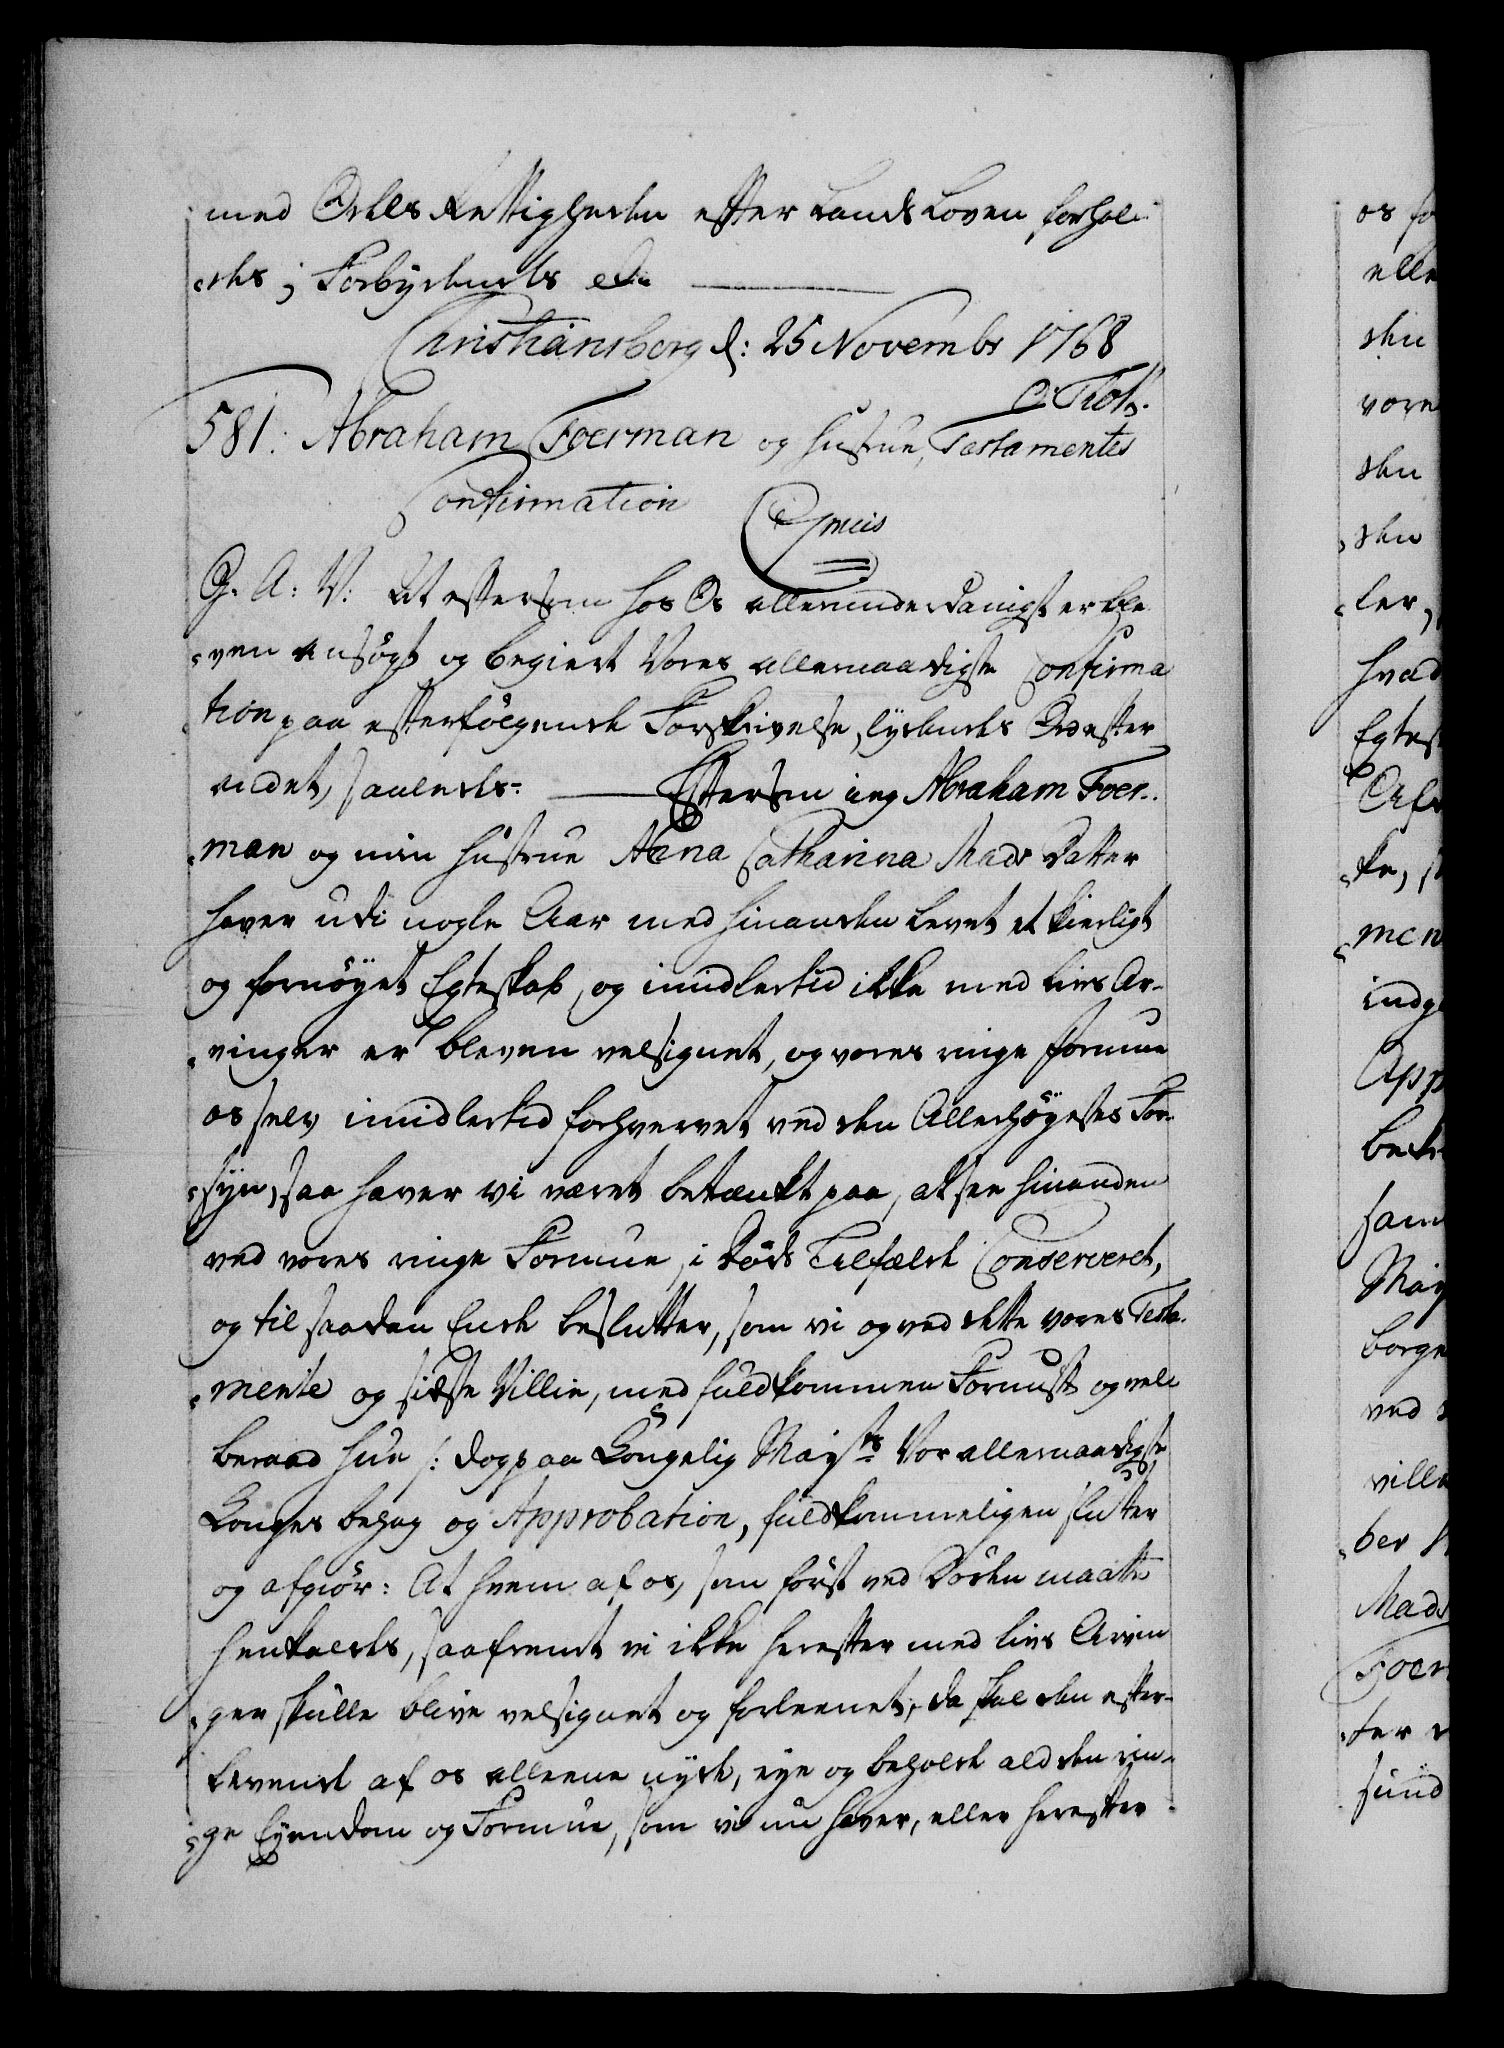 med Odels Rettigheden efter Lands Loven forhol-
des; Forbydendes etc
Christiansborg d: 25 Novembr 1768
C. Tiot.
581. Abraham Foerman og Hustrue, Testamentes
Confirmation Gratis
G. A: V: At eftersom hos Os allerunderdanigst er ble
ven ansögt og begiert Vores allernaadigste Confirma
tion paa efterfölgende Forskrivelse, lydendes Ord efter
andet, saaledes: Eftersom ieg Abraham Foer-
man og min Hustrue Anna Catharina Mads Datter
haver udi nogle Aar med hinanden levet et kierligt
og fornöyet Egteskab, og imidlertid ikke med Livs Ar-
vinger er bleven velsignet, og vores ringe formue
os selv imidlertid forhvervet ved den Allerhöyestes For-
syn, saa haver vi været betænkt paa, at see hinanden
ved vores ringe Formue, i Döds Tilfælde Conserveret,
og til saadan Ende beslutter, som vi og ved dette vores Testa-
mente og sidste Villie, med fuldkommen Fornuft og vel
beraad Hue /: dog paa Kongelig Mayts Vor allernaadigste
Konges behag og Approbation, fuldkommeligen slutter
og afgiör: At hvem af os, som först ved Döden maatte
henkaldes, saafremt vi ikke herefter med Livs Arvin
ger skulle blive velsignet og forleenet, da skal den efter-
levende af os alleene nyde, eye og beholde ald den rin-
ge Eyendom og Formue, som vi nu haver, eller herefter